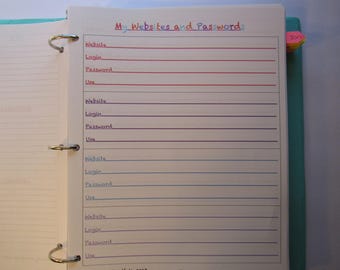 My Websites and Passwords
Website
Login
Password
Use
Website
Login
Password
Use
Website
Login
Password
Use
Website
Login
Password
Use